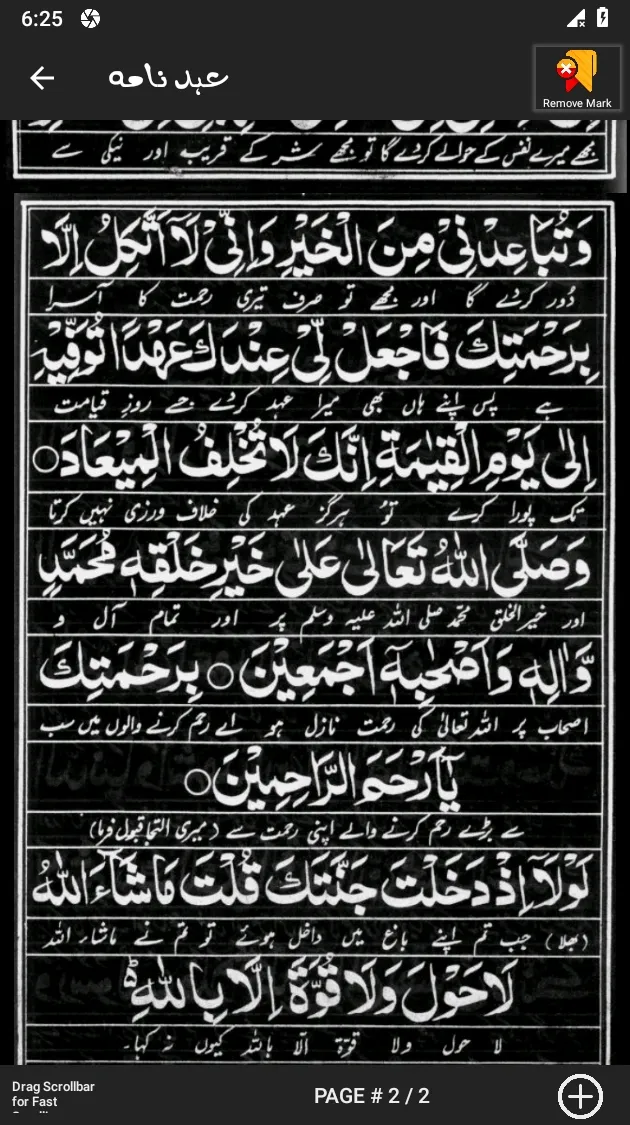 6:25
عہد نامہ
Remove Mark
مجھے میرے نفس کے حوالے کردے گا تو مجھے شر کے قریب اور نیکی سے
وَتُبَاعِدْنِیْ مِنَ الْخَیْرِ وَاِنِّیْ لَآ اَتَّكِلُ اِلَّا
دُور کردے گا اور مجھے تو صرف تیری رحمت کا آسرا
بِرَحْمَتِكَ فَاجْعَلْ لِّیْ عِنْدَكَ عَهْدًا تُوَفِّیْهِ
ہے پس اپنے ہاں بھی میرا عہد کردے جسے روزِ قیامت
اِلٰی یَوْمِ الْقِیٰمَةِ اِنَّكَ لَا تُخْلِفُ الْمِیْعَادَ○
تک پورا کرے توُ ہرگز عہد کی خلاف ورزی نہیں کرتا
وَصَلَّی اللّٰهُ تَعَالٰی عَلٰی خَیْرِ خَلْقِهٖ مُحَمَّدٍ
اور خیرالخلق محمّد صلی اللہ علیہ وسلم پر اور تمام آل و
وَّاٰلِهٖ وَاَصْحٰبِهٖٓ اَجْمَعِیْنَ○ بِرَحْمَتِكَ
اصحاب پر اللہ تعالیٰ کی رحمت نازل ہو اے رحم کرنے والوں میں سب
یَآاَرْحَمَ الرَّاحِمِیْنَ○
سے بڑے رحم کرنے والے اپنی رحمت سے (میری التجا قبول فرما)
لَوْلَآ اِذْ دَخَلْتَ جَنَّتَكَ قُلْتَ مَاشَآءَ اللّٰهُ
(بھلا) جب تم اپنے باغ میں داخل ہوئے تو تم نے ماشاء اللہ
لَا حَوْلَ وَلَا قُوَّةَ اِلَّا بِاللّٰهِ
لا حول ولا قوّۃ الّا باللہ کیوں نہ کہا۔
Drag Scrollbar
for Fast
PAGE # 2 / 2